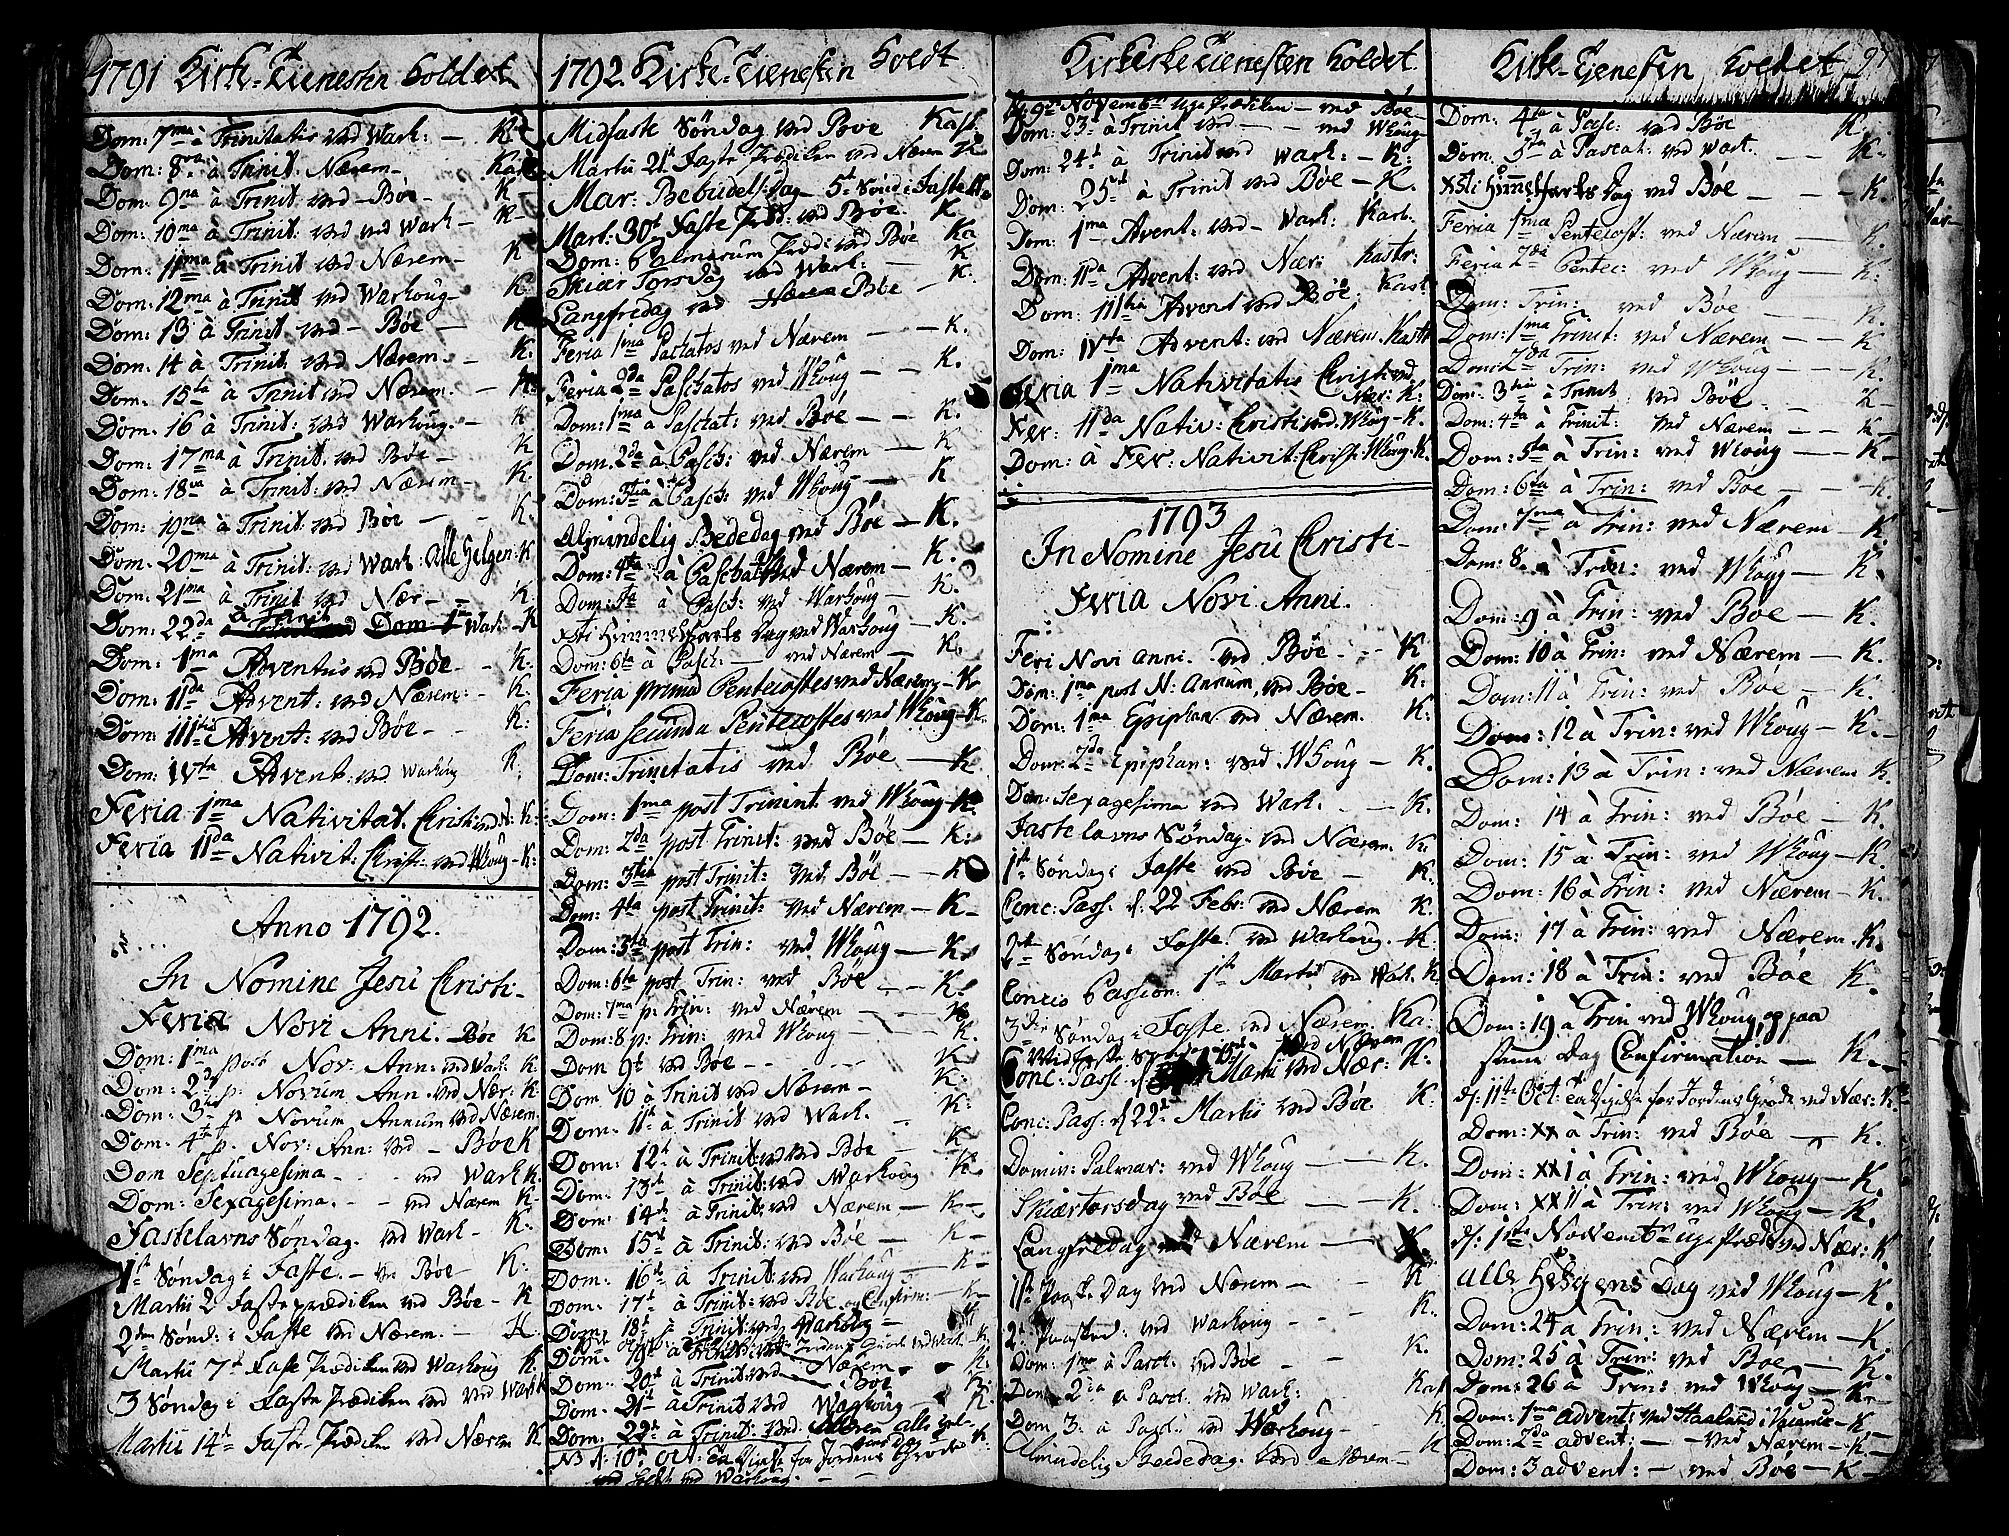 1791 Kirke-Tienesten holdet
Dom: 7ma à Trinitatis ved Warh: — K
Dom: 8va à Trinit. Nærem —
Dom: 9na à Trinit ved Bøe — K
Dom: 10ma à Trinit: ved Warh — K
Dom: 11ma à Trinit ved Nærem — K
Dom: 12ma à Trinit ved Warhoug — K
Dom: 13 à Trinit: ved Bøe —
Dom: 14 à Trinit. ved Nærem — K.
Dom. 15ta à Trinit ved Nærem. — K
Dom: 16 à Trinit: ved Warhoug — K
Dom: 17ma à Trinit. ved Bøe — K
Dom: 18va à Trinit: ved Nærem — K.
Dom: 19na à Trinit. ved Bøe — K
Dom: 20ma à Trinit: ved Warh: Alle Helgen: K
Dom: 21ma à Trinit ved Nær — K
Dom: 22da à Trinit Warh — K
Dom: 1ma Adventus ved Bøe — K.
Dom: 11da Advent: ved Nærem: — K.
Dom: 111tia Advent: ved Bøe — K:
Dom: 1Vta Advent: ved Warhoug K
Feria 1ma Nativitat. Christi ved N: K:
Feria 11da Nativit: Christ: ved Whoug — K:
Anno 1792.
In Nomine Jesu Christi —
Feria Novi Anni. Bøe K
Dom: 1ma post Nov: Ann: ved Warh: K
Dom: 2da p: Novum Ann. ved Nær: K.
Dom: 3tia p Novum Annum ved Nærem.
Dom: 4ta p. Nov: Ann: ved — Bøe K
Dom Septuagesima - - - ved Warh K.
Dom: Sexagesima. - - ved Nærem K
Fastelavns Søndag. ved Warh — K.
1ste Søndag i Faste. — ved Bøe — K:
Martii 2 Faste prædiken ved Bøe — K
2den Sønd: i Faste ved Nærem. — K.
Martii 7d Faste Prædiken ved Warhoug K
3 Søndag i Faste Prædiken ved Warh K
Martii 14d Faste Prædiken ved Nærem K
1792. Kirke-Tienesten holdt
Midfaste Søndag ved Bøe Kast.
Martii 21d Faste Prædiken ved Nærem K
Mar: Bebudels: dag — 5te Sønd i Faste
Mart: 30d Faste Præd: ved Bøe. K
Dom: Palmarum Præd: ved Bøe Ka
Skiær Torsdag ved Warh: — K
Langfredag ved Bøe — K.
Feria 1ma Paschatos ved Nærem — K.
Feria 2da Paschatos ved Whoug — K.
Dom: 1ma a Paschat: ved Bøe — K.
Dom. 2da à Pasch: ved Nærem — K
Dom: 3tia à Pasch: ved Whoug — K
Almindelig Bededag ved Bøe — K.
Dom: 4ta à Paschat ved Nærem — K.
Dom: 5ta à Pasch: ved Warhoug — K.
Xsti Himmelfarts Dag ved Warhoug — K.
Dom: 6ta à Pasch: — ved Nærem — K.
Feria prima Pentecostes ved Nærem — K
Feria secunda Pentecostes ved Whoug — K.
Dom: Trinitatis ved Bøe — K
Dom: 1ma post Trinint. ved Whoug — K
Dom: 2da post Trinit: ved Bøe — K:
Dom: 3tia post Trinit: ved Bøe — K
Dom: 4ta post Trinit: ved Nærem — K —
Dom: 5ta post Trin: ved Whoug — K
Dom: 6ta post Trin: ved Bøe — K.
Dom: 7ma p: Trin: ved Nærem — K
Dom: 8 p: Trin: ved Whoug K.
Dom 9d ved Bøe - - - K
Dom 10 à Trinit ved Nærem — K:
Dom: 11d à Trinit ved Warh. K:
Dom: 12d à Trinit ved Bøe — K
Dom: 13d à Trinit: ved Warhoug K
Dom: 14d à Trinit: ved Nærem — K
Dom: 15d à Trinit: ved Bøe — K —
Dom: 16d à Trinit: ved Warhoug — K —
Dom: 17d à Trinit: ved Bøe og Confirm: — K
Dom: 18d à Trinit: ved Warhoug —
Dom: 19d à Trinit ved Nærem — K.
Dom: 20d à Trinit ved Bøe K
Dom: 21d à Trinit ved Warhoug — K.
Dom: 22d à Trinit: ved Nærem alle
NB d: 10d Oct: Taksigelse for Jordens Grøde K:
ved Warhoug.
Kirke Tienesten holdet
d. 9d Novembr Uge Prædiken — ved Bøe
Dom: 23d à Trinit ved — ved Whoug
Dom: 24d à Trinit ved Warh: — K:
Dom: 25d à Trinit ved Bøe — K.
Dom: 1ma Advent: ved Warh: Kastr.
Dom: 11da Advent: ved Nær: Kastr:
Dom: 111tia Advent ved Bøe. Kast
Dom: 1Vta Advent: ved Nærem Kastr
Feria 1ma Nativitatis Christi ved
Nær: K:
Fer: 11da Nativ: Christi ved Whoug — K.
Dom: à Fer: Nativit: Christ: Whoug K.
1793
In Nomine Jesu Christi —
Feria Novi Anni.
Feri Novi anni. ved Bøe — K
Dom: 1ma post N: Annum, ved Bøe — K:
Dom: 1ma Epiphan ved Nærem. K:
Dom: 2da Epiphan: ved Whoug — K.
Dom: Sexagesima ved Warh. — K.
Fastelavns Søndag ved Nærem. K.
1ste Søndag i Faste ved Bøe — K.
Conc: Pass: d: 22 Febr: ved Nærem K.
2den Søndag i Faste ved Warhoug. K.
Concio Passion: 1ste Martii ved Warh. K
3die Søndag i Faste ved Nærem. Ka:
Conc: Pass: d Martii ved Nær: K:
Conc: Pass: d 22d Martii ved Bøe K:
Domin: Palmar: ved Whoug — K.
Skiærtorsdag ved Bøe — K.
Langfredag ved Nærem —
1ste Paaske Dag ved Nærem — K
2den Paasked: ved Warhoug - - K.
Dom: 1ma à Pasc: ved Bøe - - K.
Dom 2da à Pasc: ved Warh: Kas
Dom 3. à Pasc: ved Warhoug — K.
Almindelig Beededag. ved Nærem — K
Kirke-Tienesten holdet 97
Dom: 4ta à Pasc: ved Bøe K:
Dom: 5ta à Pascat: ved Warh. — K.
Xsti Himmelfarts Dag ved Bøe — K.
Feria 1ma Pentecost: ved Nærem — K.
Feria 2da Pentec: ved Whoug — K:
Dom: Trin: ved Bøe — K.
Dom: 1ma Trinit: ved Nærem — K
Dom: 2da Trin: ved Whoug — K.
Dom: 3tia à Trinit ved Bøe — K
Dom: 4ta à Trinit: ved Nærem — K
Dom: 5ta à Trin: ved Whoug — K
Dom: 6ta à Trin: ved Bøe — K.
Dom: 7ma à Trin: ved Nærem — K
Dom: 8. à Trin: ved Whoug — K.
Dom: 9 à Trin: ved Bøe — K.
Dom: 10 à Trin: ved Nærem — K.
Dom: 11 à Trin: ved Bøe — K.
Dom: 12 à Trin: ved Whoug — K.
Dom: 13 à Trin: ved Nærem K.
Dom: 14 à Trin: ved Bøe — K.
Dom: 15 à Trin: ved Whoug — K.
Dom: 16 à Trin: ved Nærem — K.
Dom: 17 à Trin: ved Nærem. K.
Dom: 18 à Trin: ved Bøe K.
Dom: 19 à Trin ved Whoug, og paa
samme Dag Confirmation — K.
d: 11te Oct: Taksigelse for Jordens Grøde ved Nær: K.
Dom: XX à Trin: ved Bøe — K.
Dom: XX1 à Trin: ved Whoug — K
Dom: XX11 à Trin: ved Whoug — K.
d: 1ste Novembr uge Præd: ved Nær: K
Alle Helgens Dag ved Whoug — K.
Dom: 24 à Trin: ved Nærem — K
Dom: 25 à Trin: ved Bøe — K.
Dom: 26 à Trin: ved Whoug — K
Dom: 1ma advent: ved Haaland i — K
Dom: 2da advent: — ved Nærem — K
Dom: 3 advent: — ved Bøe — K